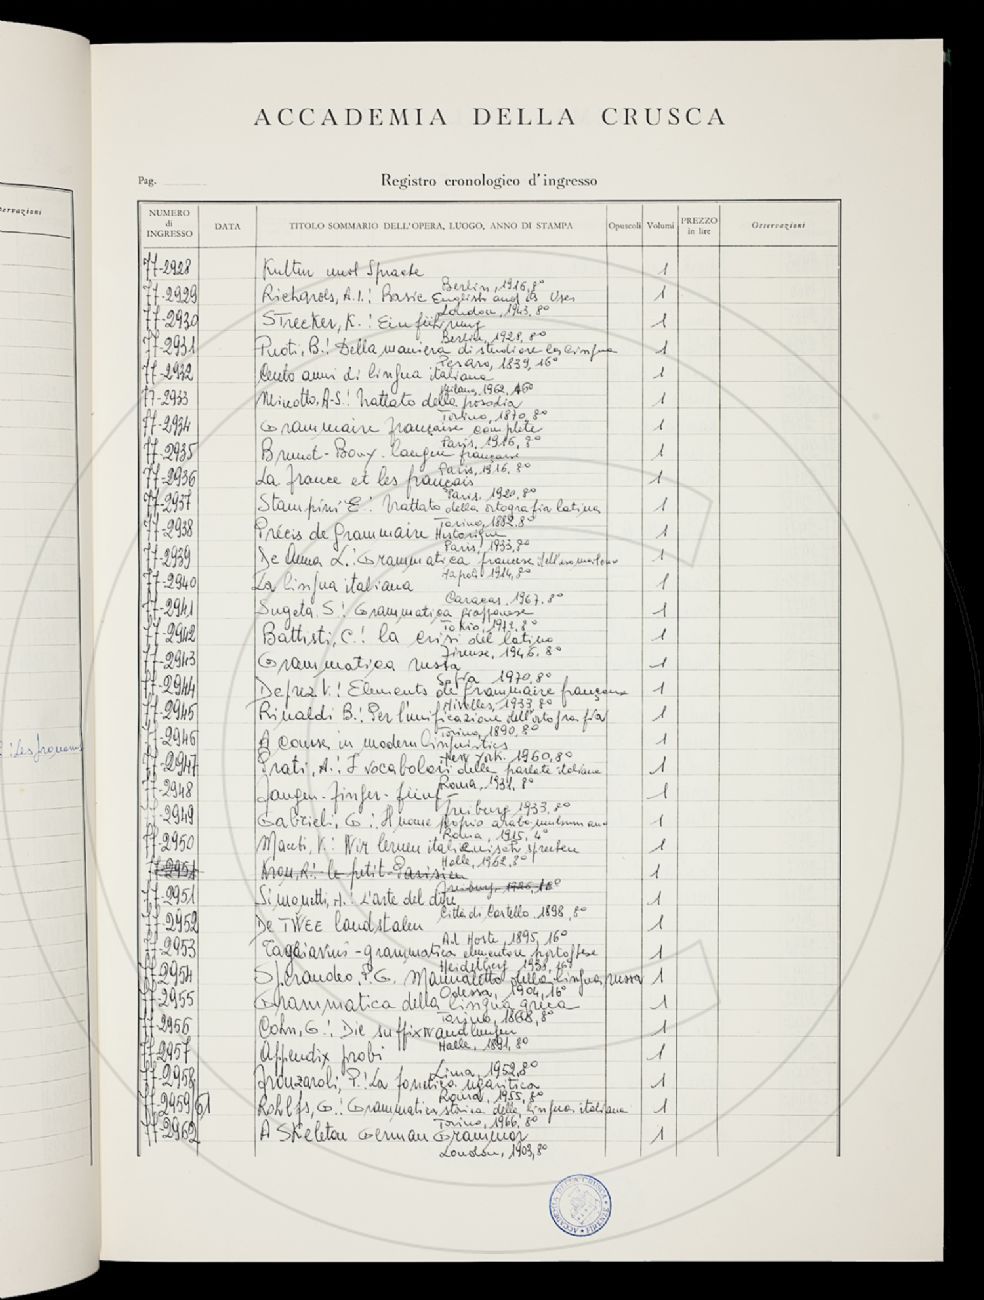 ACCADEMIA DELLA CRUSCA
Pag.
Registro cronologico d'ingresso
NUMERO di INGRESSO DATA TITOLO SOMMARIO DELL'OPERA, LUOGO, ANNO DI STAMPA Opuscoli Volumi PREZZO in lire Osservazioni
77-2928 Kultur und Sprache 1
Berlin, 1916, 8°
77-2929 Richards, A.I.: Basic English and its Uses 1
London, 1943, 8°
77-2930 Strecker, K.: Einführung 1
Berlin, 1928, 8°
77-2931 Puoti, B.: Della maniera di studiare la lingua 1
Pesaro, 1839, 16°
77-2932 Cento anni di lingua italiana 1
Milano, 1962, 16°
77-2933 Minotto, A-S.: Trattato della prosodia 1
Torino, 1870, 8°
77-2934 Grammaire française complète 1
Paris, 1916, 8°
77-2935 Brunot-Bony. langue française 1
Paris, 1916, 8°
77-2936 La france et les français 1
Paris, 1920, 8°
77-2937 Stampini E.: Trattato della ortografia latina 1
Torino, 1882, 8°
77-2938 Précis de grammaire Historique 1
Paris, 1933, 8°
77-2939 De Anna L.: Grammatica francese dell'uso moderno 1
Napoli 1914, 8°
77-2940 La lingua italiana 1
Caracas, 1967, 8°
77-2941 Sugeta S.: Grammatica giapponese 1
Tokio, 1942, 8°
77-2942 Battisti, C.: la crisi del latino 1
Firenze, 1946, 8°
77-2943 Grammatica russa 1
Sofia 1970, 8°
77-2944 Deprez V.: Elements de grammaire française 1
Nivelles, 1933, 8°
77-2945 Rinaldi B.: Per l'unificazione dell'ortografia 1
Torino, 1890, 8°
77-2946 A Course in modern linguistics 1
New York, 1960, 8°
77-2947 Prati, A.: I vocabolari delle parlate italiane 1
Roma, 1931, 8°
77-2948 1
Freiburg 1933, 8°
2949 Gabrieli, G.: Il nome proprio arabo-musulmano 1
Roma, 1915, 4°
77-2950 V.: Wir lernen italienisch sprechen 1
Halle, 1962, 8°
77-2951 Kron, R.: le petit Parisien 1
Freiburg, 1926, 16°
77-2951 Simonetti, A.: L'arte del dire 1
Città di Castello 1898, 8°
77-2952 De TWEE landstalen 1
Ad Hoste, 1895, 16°
77-2953 Tagliavini - grammatica elementare portoghese 1
Heidelberg 1938, 16°
77-2954 Sperandeo, P.G. Manualetto della lingua russa 1
Odessa, 1904, 16°
77-2955 Grammatica della lingua greca 1
Torino, 1868, 8°
77-2956 Cohn, G.: Die suffixwandlungen 1
Halle, 1891, 8°
77-2957 Appendix probi 1
Lima, 1952, 8°
77-2958 Fronzaroli, P.: La fonetica ugaritica 1
Roma, 1955, 8°
77-2959/61 Rohlfs, G.: Grammatica storica della lingua italiana 1
Torino, 1966, 8°
77-2962 A Skeleton German Grammar 1
London, 1903, 8°
ACCADEMIA DELLA CRUSCA FIRENZE